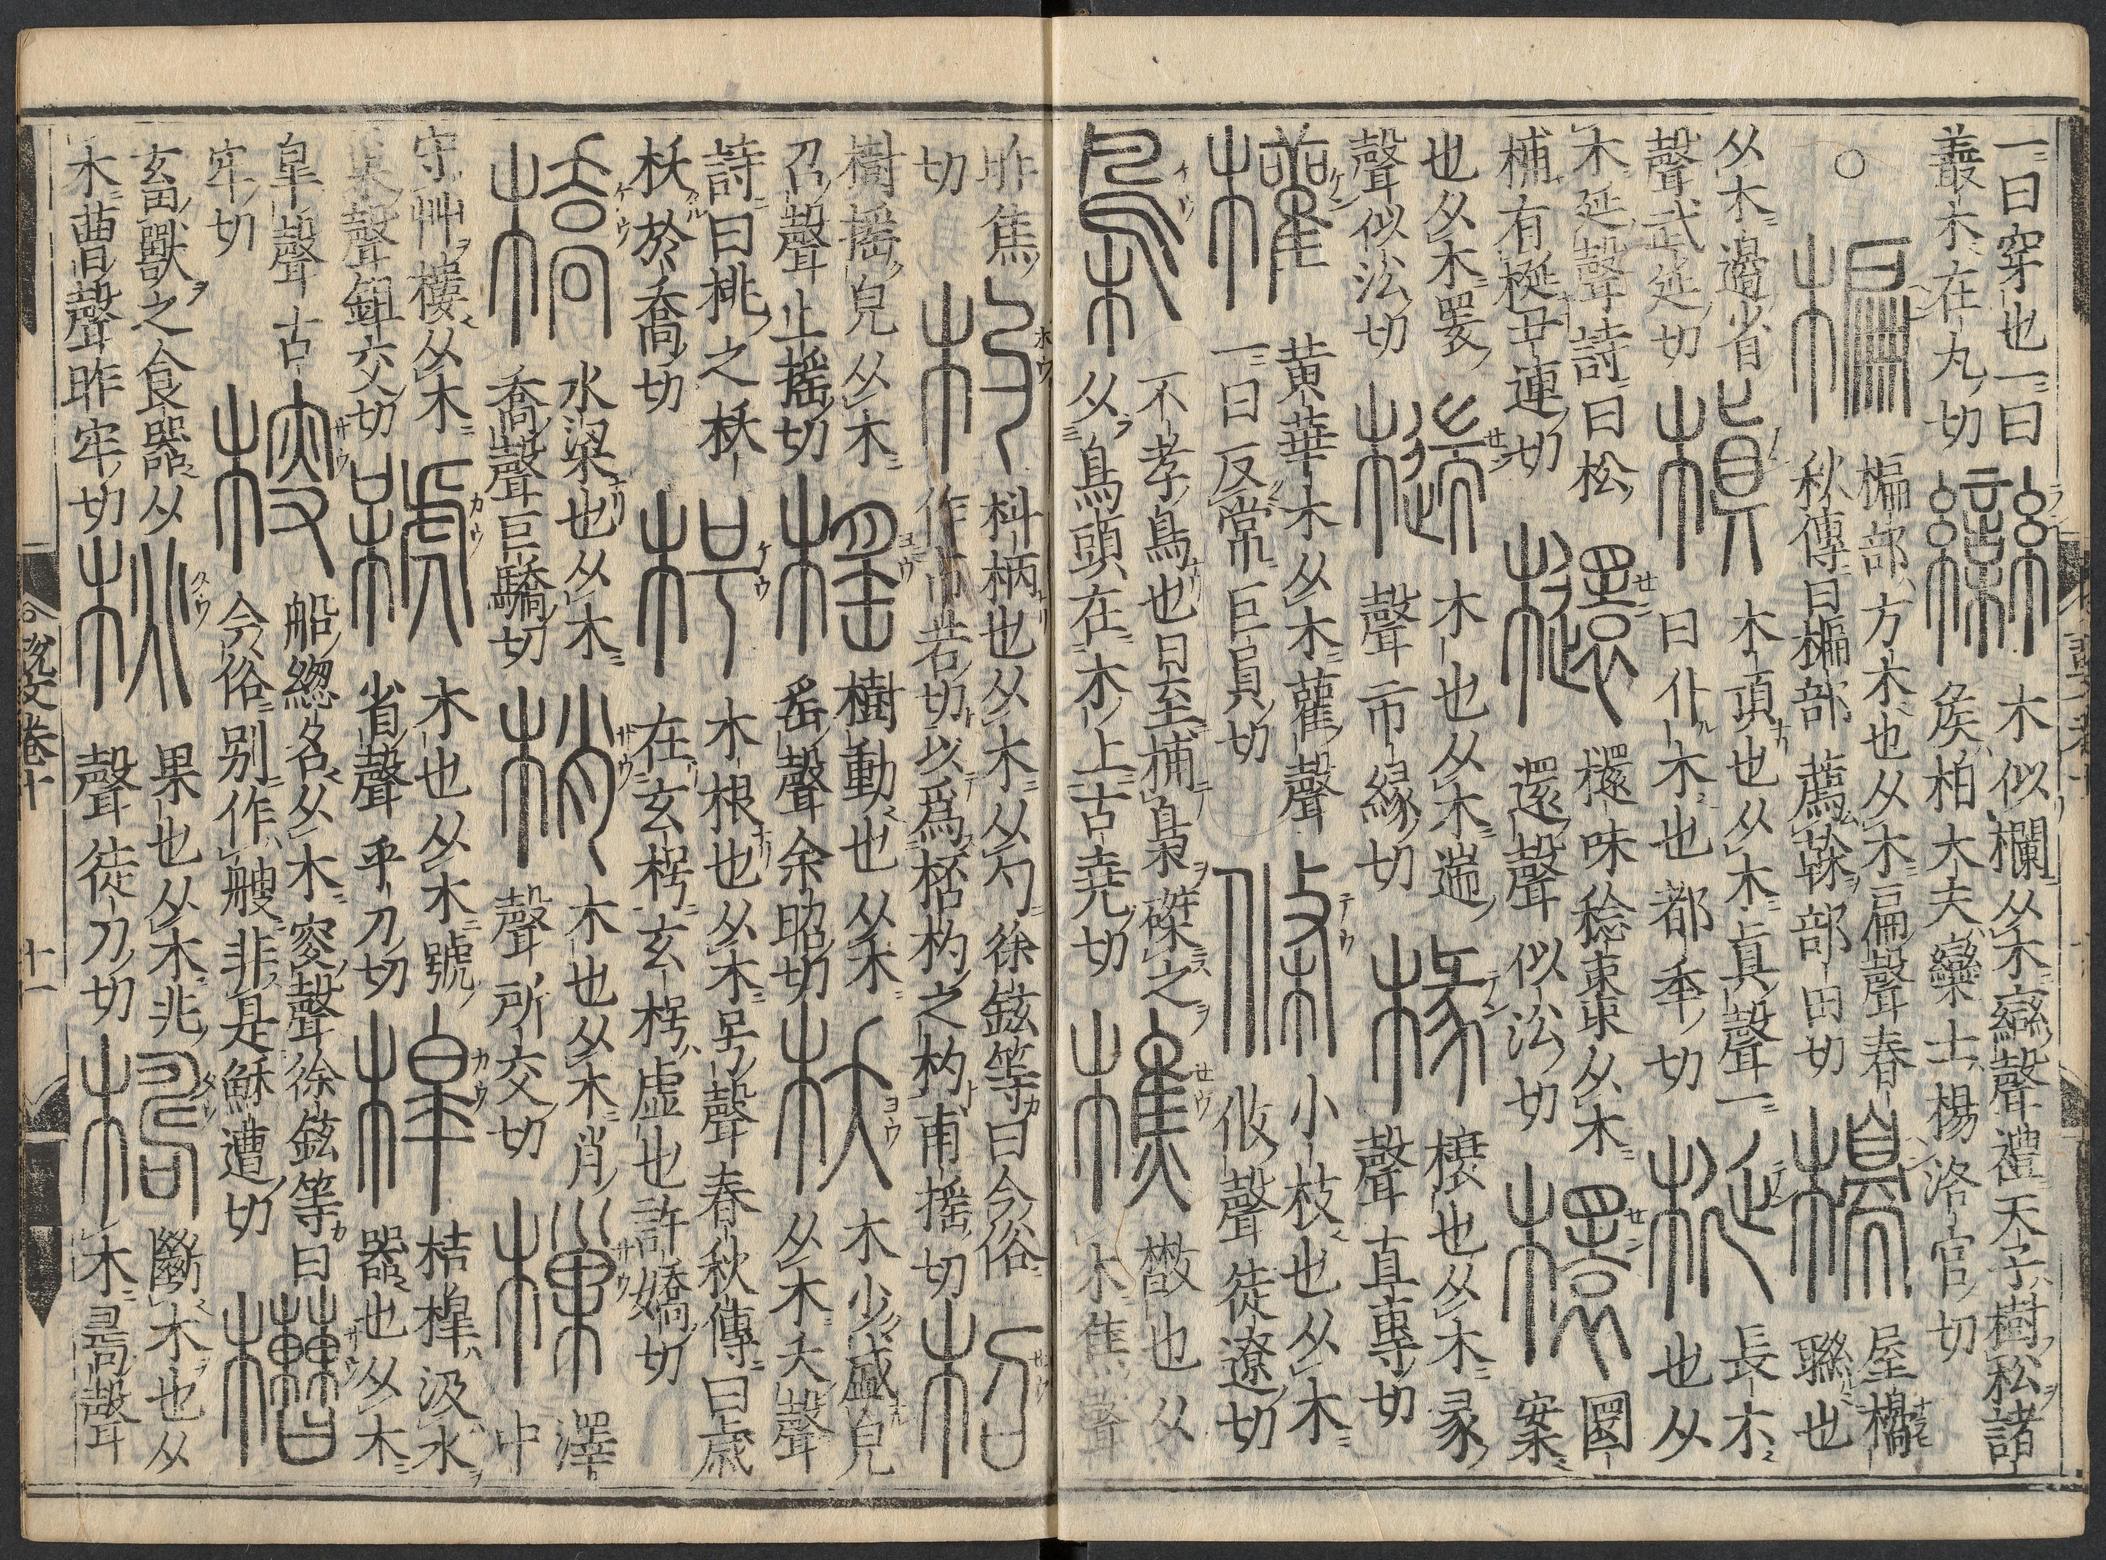 一曰穿也一曰
叢木在丸切
欒
木似欄从木䜌聲禮天子樹松諸
矦柏大夫欒士楊洛官切
○
楄
楄部方木也从木扁聲春
秋傳曰楄部薦榦部田切
櫋
屋櫋
聯也
从木邊省
聲武延切
槙
木頂也从木眞聲一
曰仆木也都秊切
梴
長木
也从
木延聲詩曰松
桷有梴丑連切
味稔棗从木
還聲似沿切
檈
圜
案
也从木睘
聲似沿切
木也从木遄
聲市緣切
椽
榱也从木彖
聲直專切
權
黃華木从木雚聲
一曰反常巨員切
條
小枝也从木
攸聲徒遼切
梟
不孝鳥也日至捕梟磔之
从鳥頭在木上古堯切
樵
㪔也从
木焦聲
昨焦
切
杓
枓柄也从木从勺徐鉉等曰今俗
作市若切以爲桮杓之杓甫搖切
柖
樹搖皃从木
召聲止搖切
榣
樹動也从木
䍃聲余昭切
枖
木少盛皃
从木夭聲
詩曰桃之枖
枖於喬切
枵
木根也从木号聲春秋傳曰歲
在玄枵玄枵虛也許嬌切
橋
水梁也从木
喬聲巨驕切
梢
木也从木肖
聲所交切
樔
澤
中
守艸樓从木
巢聲鉏交切
木也从木號
省聲乎刀切
槔
桔槔汲水
器也从木
皐聲古
牢切
梭
船緫名从木叜聲徐鉉等曰
今俗別作艘非是穌遭切
槽
畜獸之食器从
木曹聲昨牢切
桃
果也从木兆
聲徒刀切
斷木也从
木𠷎聲
說文卷十
十一